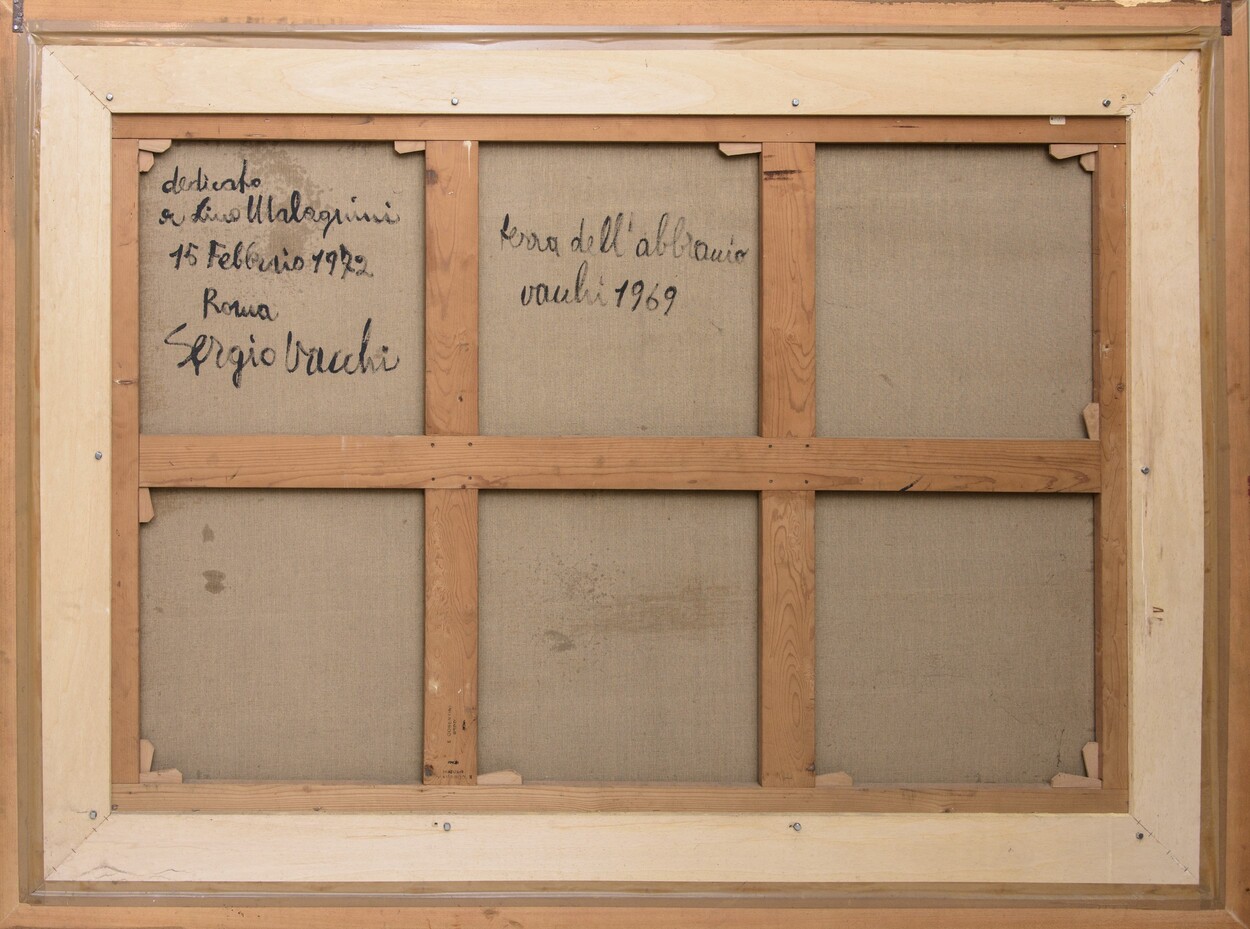 dedicato
a Lino Malagnini
15 Febbraio 1972
Roma
Sergio Vacchi
terra dell'abbraccio
vacchi 1969